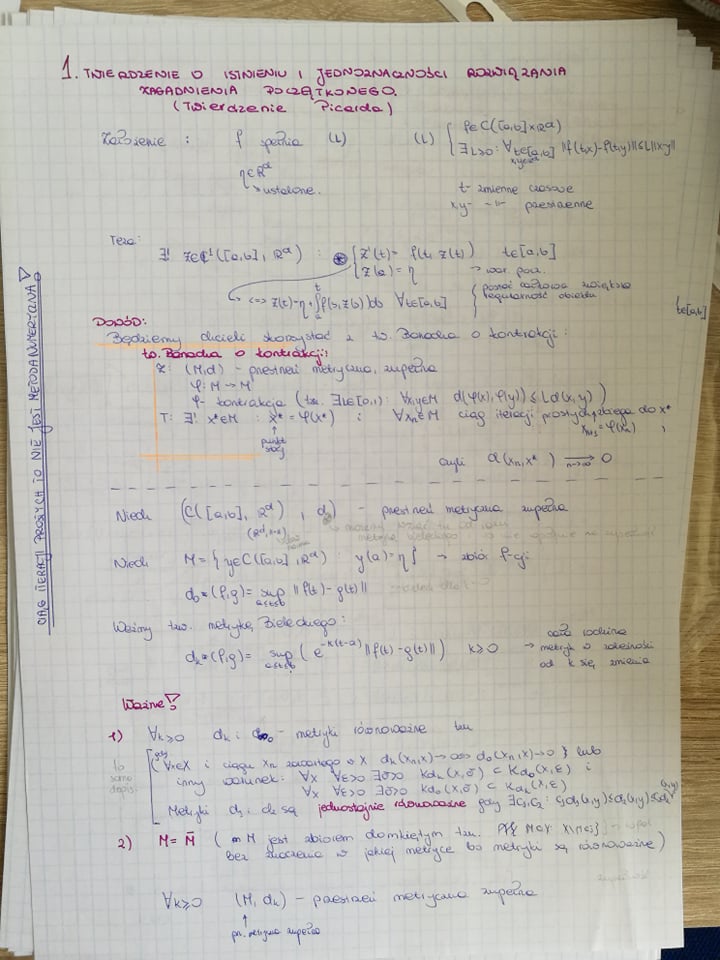 1. TWIERDZENIE O ISTNIENIU I JEDNOZNACZNOŚCI ROZWIĄZANIA
ZAGADNIENIA POCZĄTKOWEGO.
(Twierdzenie Picarda)
Założenie : f spełnia (L) (L) { f∈C([a,b]×ℝᵈ)
∃L≥0: ∀t∈[a,b] x,y∈ℝᵈ ||f(t,x)-f(t,y)||≤L||x-y||
η∈ℝᵈ
↳ ustalone.
t - zmienne czasowe
x,y - -||- przestrzenne
Teza:
∃! z∈C¹([a,b], ℝᵈ) : ⊛ { z'(t) = f(t, z(t)) t∈[a,b]
z(a) = η → war. pocz.
<=> z(t)=η+∫ₐᵗ f(s,z(s))ds ∀t∈[a,b] { postać całkowa zwiększa
regularność obiektu
t∈[a,b]
DOWÓD:
Będziemy chcieli skorzystać z tw. Banacha o kontrakcji:
tw. Banacha o kontrakcji:
Z: (M,d) - przestrzeń metryczna, zupełna
φ: M → M
φ - kontrakcja (tzn. ∃L∈[0,1): ∀x,y∈M d(φ(x),φ(y)) ≤ L d(x,y))
T: ∃! x*∈M : x* = φ(x*) i ∀x₀∈M ciąg iteracji prostych zbiega do x*
xₙ₊₁ = φ(xₙ)
↑
punkt
stały
czyli d(xₙ,x*) →n→∞ 0
Niech (C([a,b], ℝᵈ), d₀) - przestrzeń metryczna zupełna
Niech M = { y∈C([a,b],ℝᵈ) : y(a)=η } → zbiór f-cji
d₀(f,g) = sup a≤t≤b ||f(t)-g(t)||
Weźmy tzw. metrykę Bieleckiego:
dₖ(f,g) = sup a≤t≤b (e^-k(t-a) ||f(t)-g(t)||) k≥0 → cała rodzina
metryk w zależności
od k się zmienia
Ważne!
1) ∀k≥0 dₖ i d₀ - metryki równoważne tzn
to
samo
dopis:
( ∀x∈X i ciągu xₙ zawartego w X dₖ(xₙ,x)→0 <=> d₀(xₙ,x)→0 ) lub
inny warunek: ∀x ∀ε>0 ∃δ>0 Kdₖ(x,δ) ⊂ Kd₀(x,ε) i
∀x ∀ε>0 ∃δ>0 Kd₀(x,δ) ⊂ Kdₖ(x,ε)
Metryki d₁ i d₂ są jednostajnie równoważne gdy ∃C₁,C₂: C₁d₁(x,y)≤d₂(x,y)≤C₂d₁(x,y)
2) M = M̄ ( M jest zbiorem domkniętym tzn.
bez znaczenia w jakiej metryce bo metryki są równoważne)
∀k≥0 (M, dₖ) - przestrzeń metryczna zupełna
↑
prz. metryczna zupełna
CIĄG ITERACJI PROSTYCH TO NIE JEST METODA NUMERYCZNA!